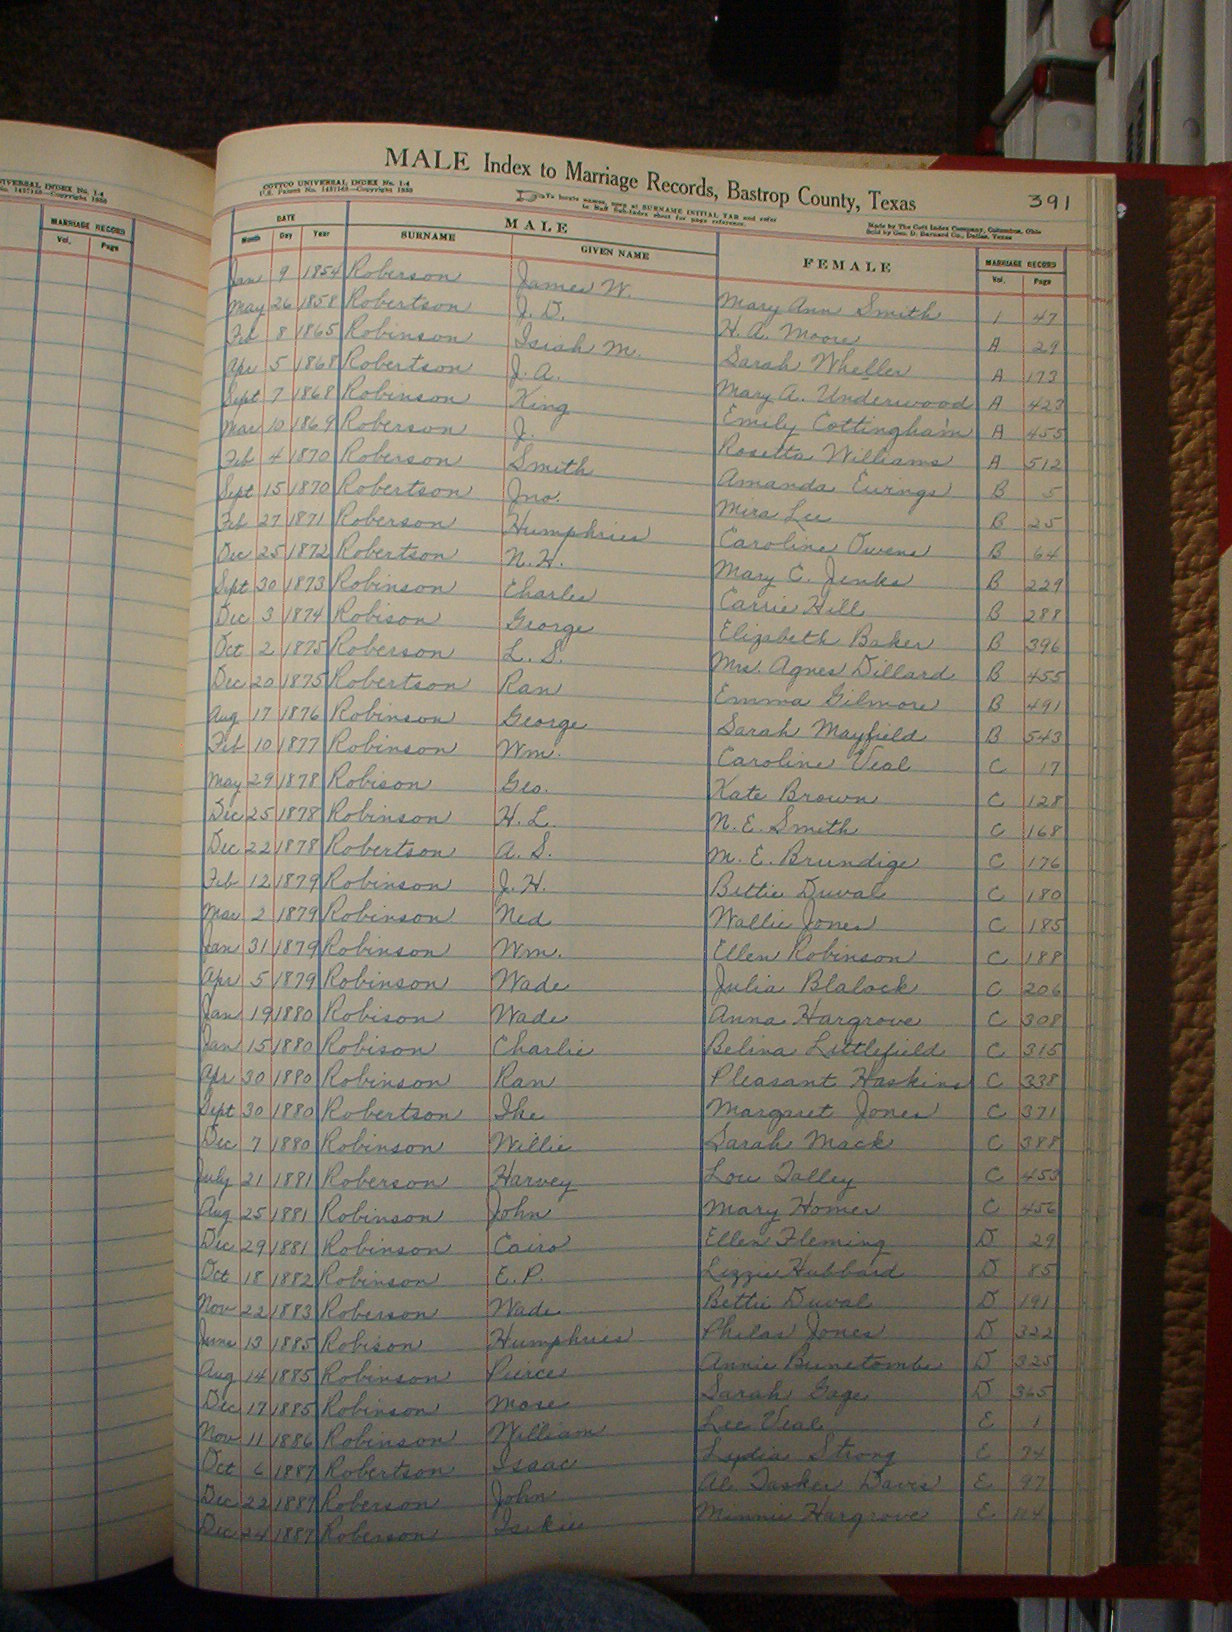 UNIVERSAL INDEX No. 1-4
MARRIAGE RECORD
Vol. Page
MALE Index to Marriage Records, Bastrop County, Texas 391
COTTCO UNIVERSAL INDEX No. 1-4
To locate names, open at SURNAME INITIAL TAB and refer
to Stiff Sub-Index sheet for page reference.
Made by The Cott Index Company, Columbus, Ohio
Sold by Geo. D. Barnard Co., Dallas, Texas
DATE MALE FEMALE MARRIAGE RECORD
Month Day Year SURNAME GIVEN NAME Vol. Page
Jan 9 1854 Roberson James W. Mary Ann Smith 1 47
May 26 1858 Robertson J. D. H. A. Moore A 29
Feb 8 1865 Robinson Isiah M. Sarah Wheller A 173
Apr 5 1868 Robertson J. A. Mary A. Underwood A 423
Sept 7 1868 Robinson King Emily Cottingham A 455
Mar 10 1869 Roberson J. Rosetta Williams A 512
Feb 4 1870 Roberson Smith Amanda Ewings B 5
Sept 15 1870 Robertson Jno. Mira Lee B 25
Feb 27 1871 Roberson Humphries Caroline Owens B 64
Dec 25 1872 Robertson N. H. Mary C. Jenks B 229
Sept 30 1873 Robinson Charles Carrie Hill B 288
Dec 3 1874 Robison George Elizabeth Baker B 396
Oct 2 1875 Roberson L. S. Mrs. Agnes Dillard B 455
Dec 20 1875 Robertson Ran Emma Gilmore B 491
Aug 17 1876 Robinson George Sarah Mayfield B 543
Feb 10 1877 Robinson Wm. Caroline Veal C 17
May 29 1878 Robison Geo. Kate Brown C 128
Dec 25 1878 Robinson H. L. N. E. Smith C 168
Dec 22 1878 Robertson A. S. M. E. Brundige C 176
Feb 12 1879 Robinson J. H. Bettie Duval C 180
Mar 2 1879 Robinson Ned Wallie Jones C 185
Jan 31 1879 Robinson Wm. Ellen Robinson C 188
Apr 5 1879 Robinson Wade Julia Blalock C 206
Jan 19 1880 Robison Wade Anna Hargrove C 308
Jan 15 1880 Robison Charlie Belina Littlefield C 315
Apr 30 1880 Robinson Ran Pleasant Haskins C 338
Sept 30 1880 Robertson Ike Margaret Jones C 371
Dec 7 1880 Robinson Willie Sarah Mack C 388
July 21 1881 Roberson Harvey Lou Talley C 453
Aug 25 1881 Robinson John Mary Homer C 456
Dec 29 1881 Robinson Cairo Ellen Fleming D 29
Oct 18 1882 Robinson E. P. Lizzie Hubbard D 85
Nov 22 1883 Roberson Wade Bettie Duval D 191
June 13 1885 Robison Humphries Philas Jones D 322
Aug 14 1885 Robinson Pierce Annie Bunetombe D 325
Dec 17 1885 Robinson Mose Sarah Gage D 365
Nov 11 1886 Robinson William Lee Veal E 1
Oct 6 1887 Robertson Isaac Lydia Strong E 74
Dec 22 1887 Roberson John Al Tasker Davis E 97
Dec 24 1887 Roberson Minnie Hargrove E 104